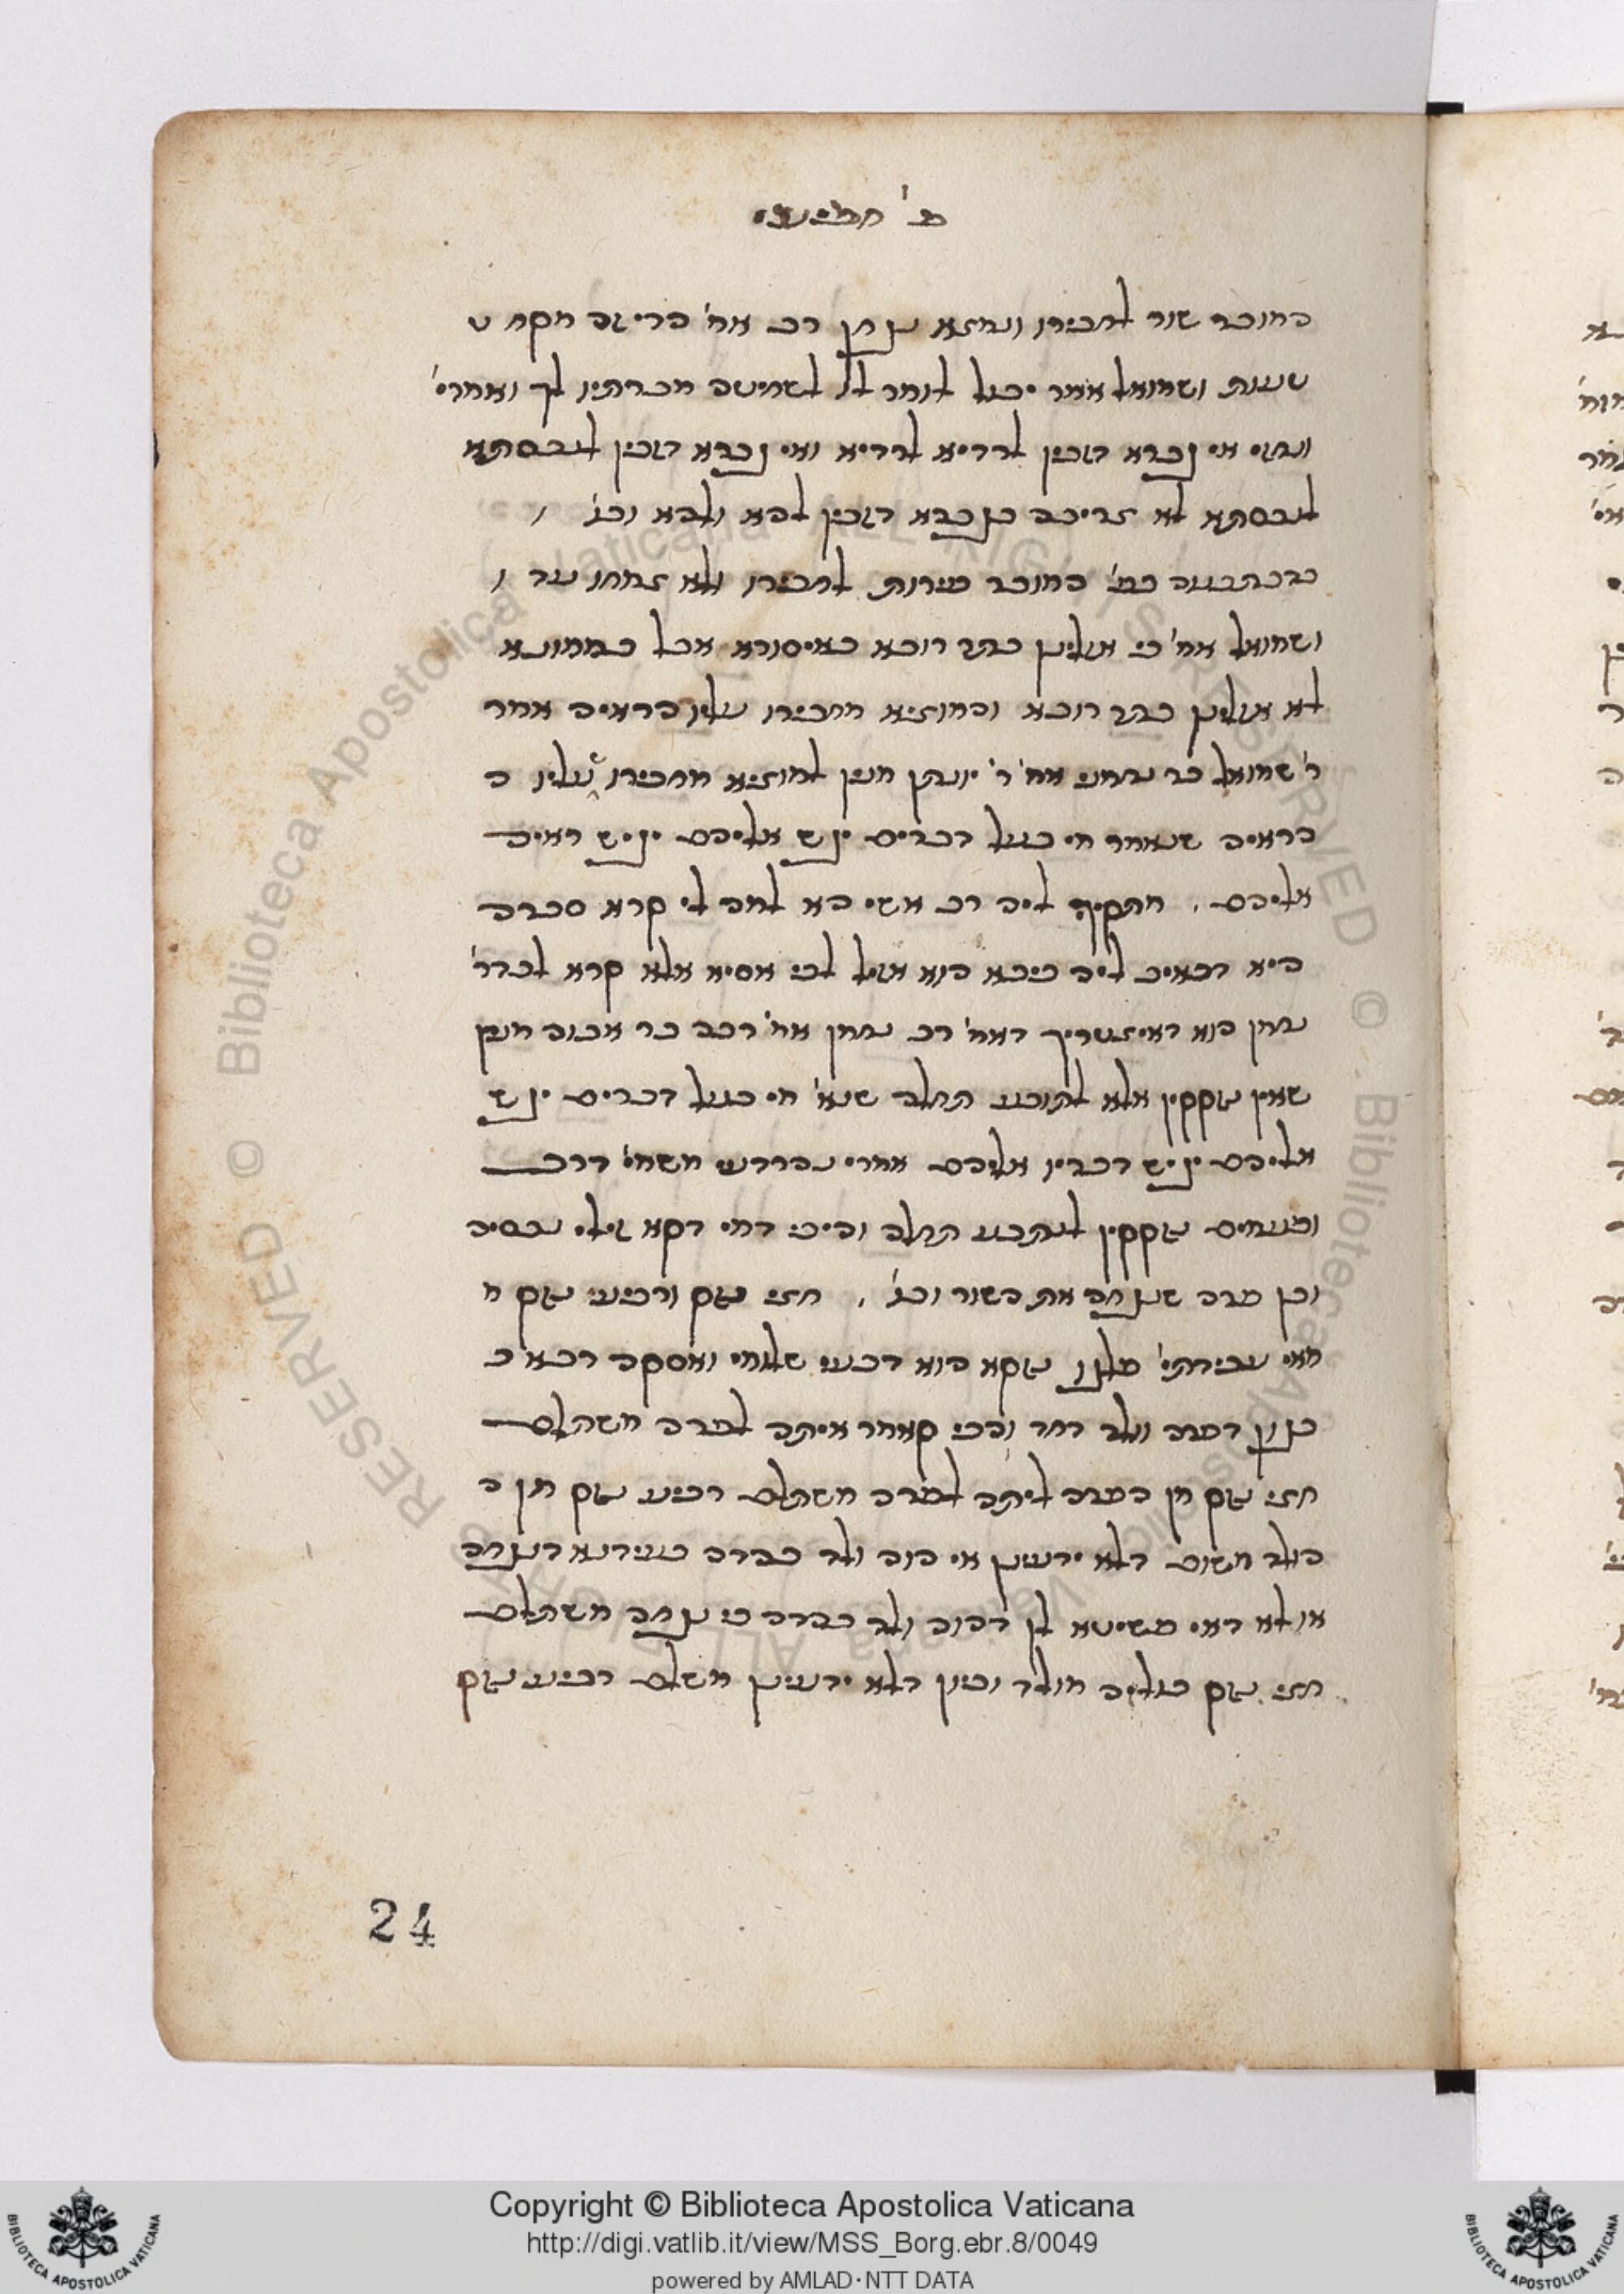 פ' חמישי
המוכר שור לחבירו ונמצא נגחן רב אמ' הרי זה מקח ט
טעות ושמואל אמר יכול לומר לו לשחיטה מכרתיו לך ואמרי'
וניחזי אי גברא דזבין לרדיא לרדיא ואי גברא דזבין לנכסתא
לנכסתא לא צריכה בגברא דזבין להא ולהא וכו'
המוכר פירות לחבירו ולא צמחו
ושמואל אמ' כי אזלינן בתר רובא באיסורא אבל בממונא
לא אזלינן בתר רובא והמוציא מחבירו עליו הראיה אמר
ר' שמואל בר נחמני אמ' ר' יונתן מנין למוציא מחבירו שעליו ה
הראיה שנאמר מי בעל דברים יגש אליהם יגיש ראיה
אליהם מתקיף ליה רב אשי הא למה לי קרא סברה
היא דכאיב ליה כיבא הוא אזיל לבי אסיא אלא קרא לכדר'
נחמן הוא דאיצטריך דאמ' רב נחמן אמ' רבה בר אבוה מנין
שאין נזקקין אלא לתובע תחלה שנא' מי בעל דברים יגש
אליהם יגיש דבריו אליהם אמרי נהרדעי משמי' דרב
ופעמים נזקקין לנתבע תחלה והיכי דמי דקא זילי נכסיה
וכן פרה שנגחה את השור וכו' חצי נזק ורביע נזק מ
מאי עבידתי' פלגו נזקא הוא דבעי שלומי ואסקה רבא ב
כגון דפרה וולד דחד והכי קאמר איתה לפרה משתלם
חצי נזק מן הפרה ליתה לפרה משתלם רביע נזק מן ה
הולד משום דלא ידעינן אי הוה ולד בהדה בעידנא דנגחה
או לא דאי פשיטא לן דהוה ולד בהדה כי נגחה משתלם
חצי נזק כוליה מולד וכיון דלא ידעינן משלם רביע נזק
24
Copyright © Biblioteca Apostolica Vaticana
http://digi.vatlib.it/view/MSS_Borg.ebr.8/0049
powered by AMLAD·NTT DATA